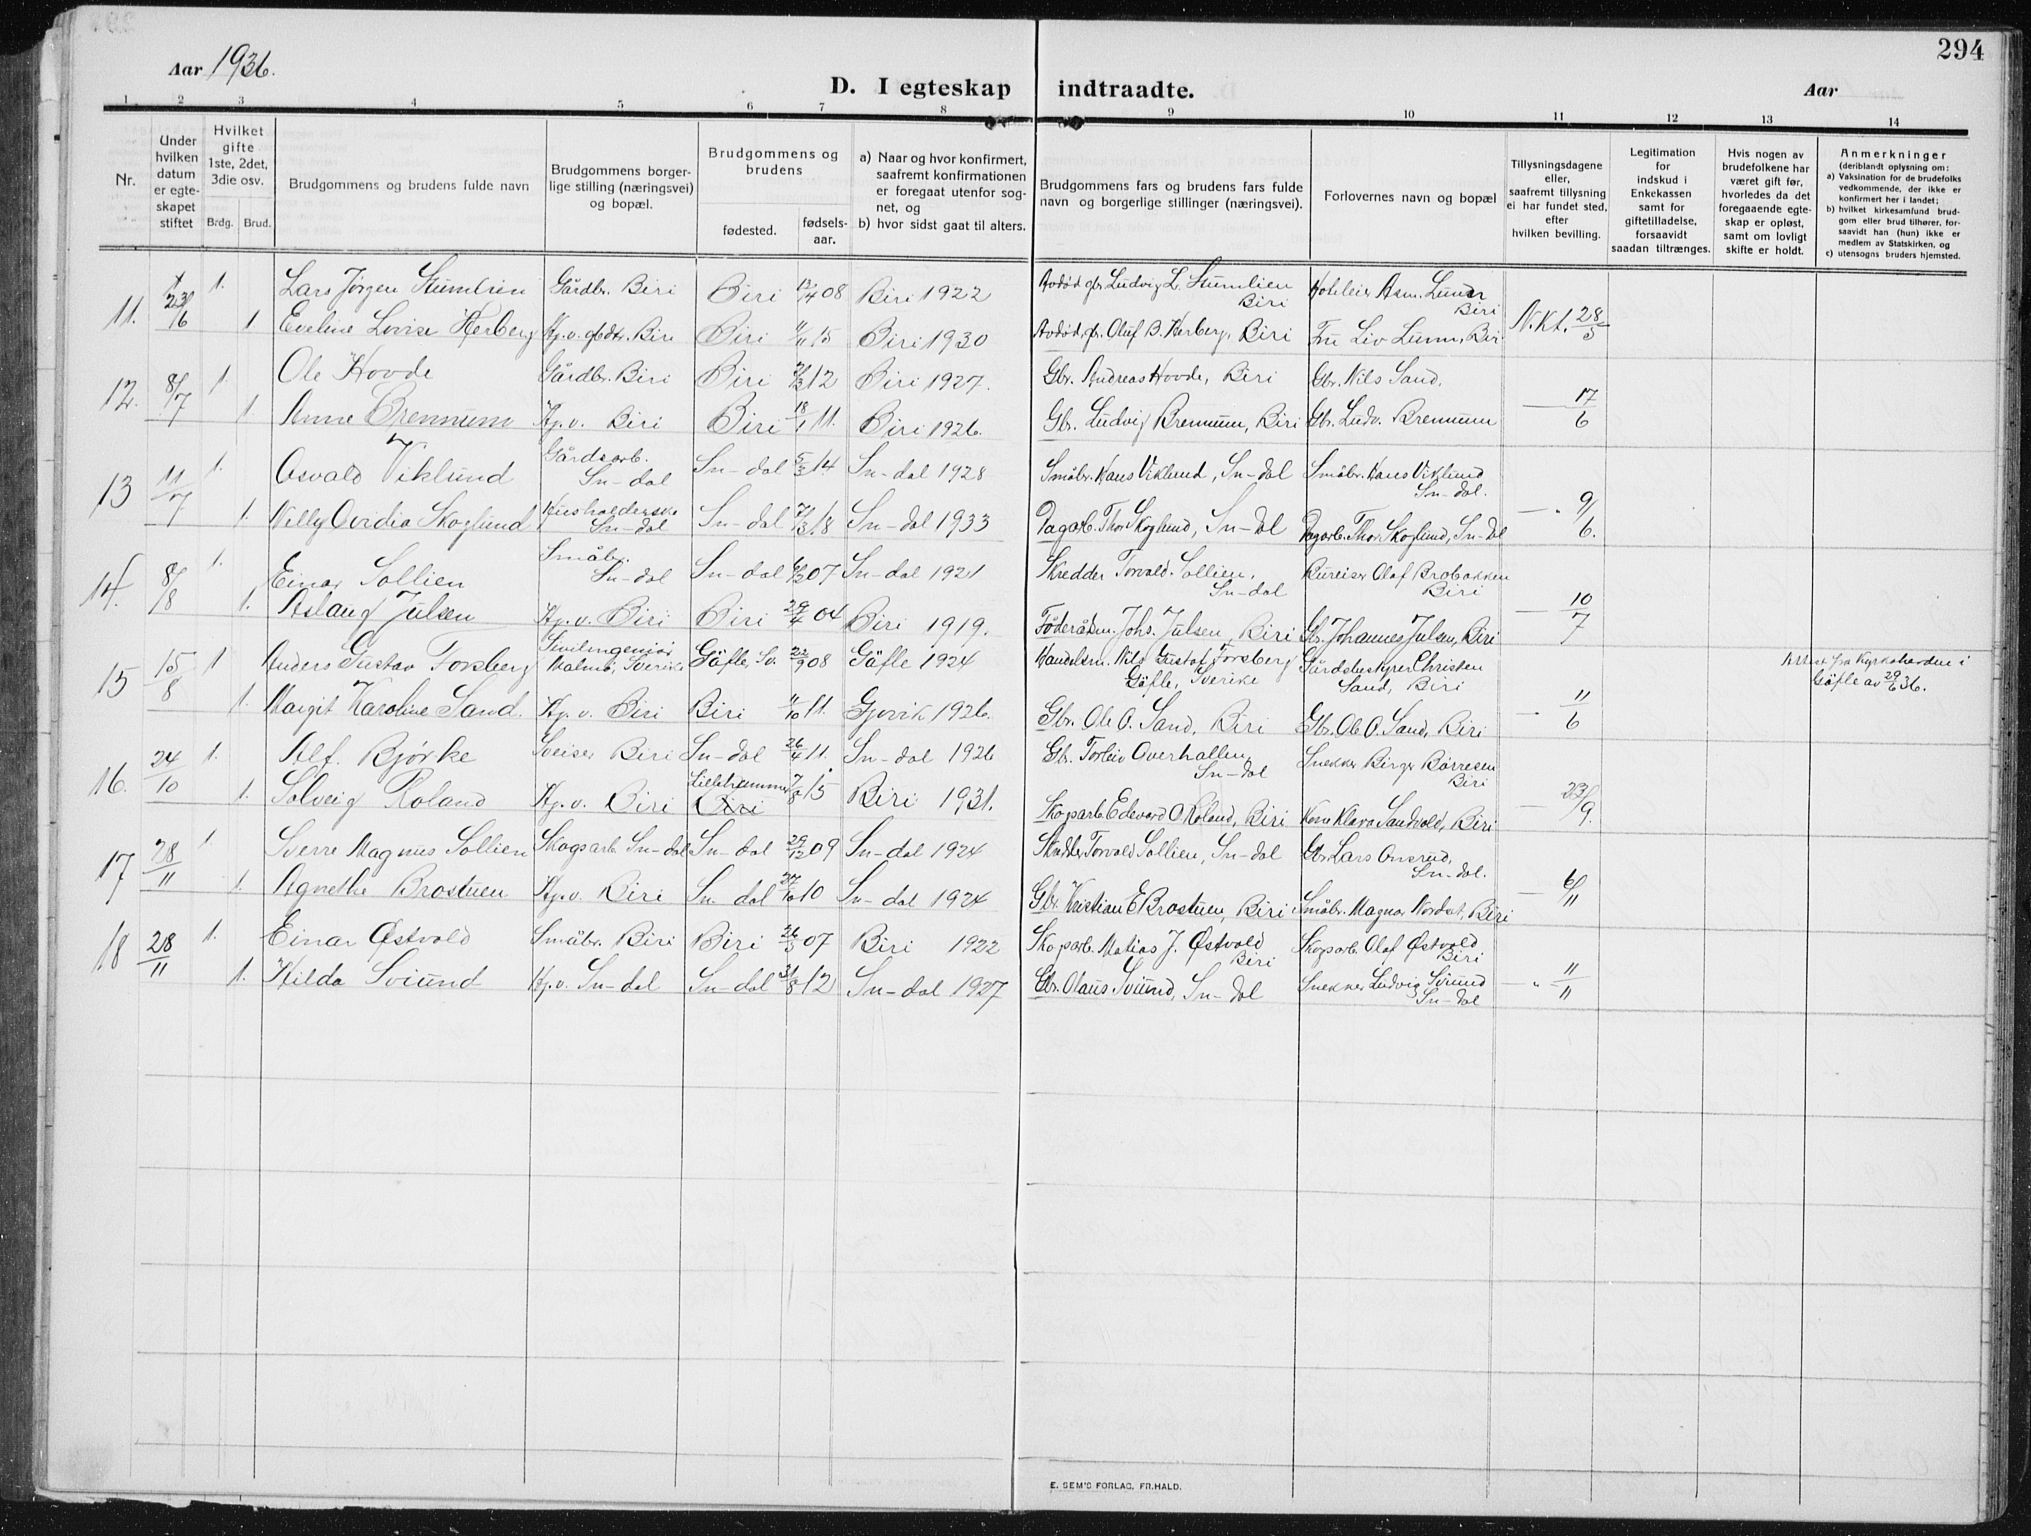 294
Aar 1936.
D. I egteskap indtraadte.
Aar
1 2 3 4 5 6 7 8 9 10 11 12 13 14
Nr.
Under hvilken datum er egte-skapet stiftet
Hvilket gifte 1ste, 2det, 3die osv.
Brdg. Brud.
Brudgommens og brudens fulde navn
Brudgommens borger-lige stilling (næringsvei) og bopæl.
Brudgommens og brudens
fødested.
fødsels-aar.
a) Naar og hvor konfirmert, saafremt konfirmationen er foregaat utenfor sog-net, og
b) hvor sidst gaat til alters.
Brudgommens fars og brudens fars fulde navn og borgerlige stillinger (næringsvei).
Forlovernes navn og bopæl
Tillysningsdagene eller, saafremt tillysning ei har fundet sted, efter hvilken bevilling.
Legitimation for indskud i Enkekassen samt for giftetilladelse, forsaavidt saadan tiltrænges.
Hvis nogen av brudefolkene har været gift før, hvorledes da det foregaaende egte-skap er opløst, samt om lovligt skifte er holdt.
Anmerkninger
(deriblandt oplysning om:
a) Vaksination for de brudefolks vedkommende, der ikke er konfirmert her i landet;
b) hvilket kirkesamfund brud-gom eller brud tilhører, for-saavidt han (hun) ikke er medlem av Statskirken, og
c) utensogns bruders hjemsted.
11. 23/6 1. Lars Jørgen Stumlien Gårdbr. Biri Biri 13/4 08 Biri 1922 Avdød gbr. Ludvig L. Stumlien Biri Asm. Lundr Biri
1 Eveline Lovise Kerberg Hj.v. gbdtr. Biri Biri 15 Biri 1930 Avdød gbr. Oluf B. Kerberg, Biri Fru Liv Lunn, Biri N.Kt. 28/5
12. 8/7 1. Ole Hovde Gårdbr. Biri Biri 12 Biri 1927. Gbr. Andreas Hovde, Biri Gbr. Nils Sand.
1. Anne Brennum Hj.v. Biri Biri 18/1 11. Biri 1926. Gbr. Ludvig Brennum, Biri Gbr. Ludv. Brennum — 17/6
13 11/7 1. Osvald Viklund Gårdsarb. Sn-dal Sn-dal 5/3 14 Sn-dal 1928 Småbr. Hans Viklund, Sn-dal Småbr. Hans Viklund Sn-dal.
1. Nelly Ovidia Skoglund Husholderske Sn-dal Sn-dal 18 Sn-dal 1933 Dagarb. Thor Skoglund, Sn-dal Dagarb. Thor Skoglund, Sn-dal — " 9/6.
14. 8/8 1. Einar Sollien Småbr. Sn-dal Sn-dal 07 Sn-dal 1921 Skredder Torvald Sollien, Sn-dal Bureiser Olaf Brobakken Biri
1. Aslaug Julsen Hj.v. Biri Biri 29/4 04 Biri 1919. Føderådsm. Johs. Julsen, Biri Gbr. Johannes Julsen, Biri — 10/7
15 15/8 1 Anders Gustav Forsberg Sivilingeniør Malmø, Sverike Gäfle, Sv. 22/9 08 Gäfle 1924 Handelsm. Nils Gustaf Forsberg Gäfle, Sverike Gårdbestyrer Christen Sand, Biri Attest fra Kyrkoherden i Gäfle av 29/6 36.
1. Margit Karoline Sand. Hj.v. Biri Biri 11/10 11. Gjøvik 1926. Gbr. Ole O. Sand, Biri Gbr. Ole O. Sand, Biri — " 11/6
16. 24/10 1. Alf Bjørke Sveiser Biri Sn-dal 26/4 11. Sn-dal 1926 Gbr. Torleiv Overhallen, Sn-dal Snekker Birger Børresen Biri
1. Solveig Roland Hj.v. Biri Lillehammer Biri 7/8 15 Biri 1931. Skogsarb. Edevard O Roland, Biri Klara Sandvold, Biri — 23/9.
17 28/11 1 Sverre Magnus Sollien Skogsarb. Sn-dal Sn-dal 29/12 09 Sn-dal 1924 Skredder Torvald Sollien, Sn-dal Gbr. Lars Onsrud, Sn-dal.
1. Agnethe Brostuen Hj.v. Biri Sn-dal 27/10 10 Sn-dal 1924 Gbr. Kristian E Brostuen, Biri Småbr. Magnar Nordset, Biri — 6/11
18 28/11 1. Einar Østvold Småbr. Biri Biri 26/5 07 Biri 1922 Skogsarb. Matias J. Østvold Biri Skogsarb. Olaf Østvold Biri
1. Hilda Sviund Hj.v. Sn-dal Sn-dal 31/8 12 Sn-dal 1927 Gbr. Olaus Sviund, Sn-dal Snekker Ludvig Sviund Sn-dal — " 11/11
E. SEM'S FORLAG, FR.HALD.